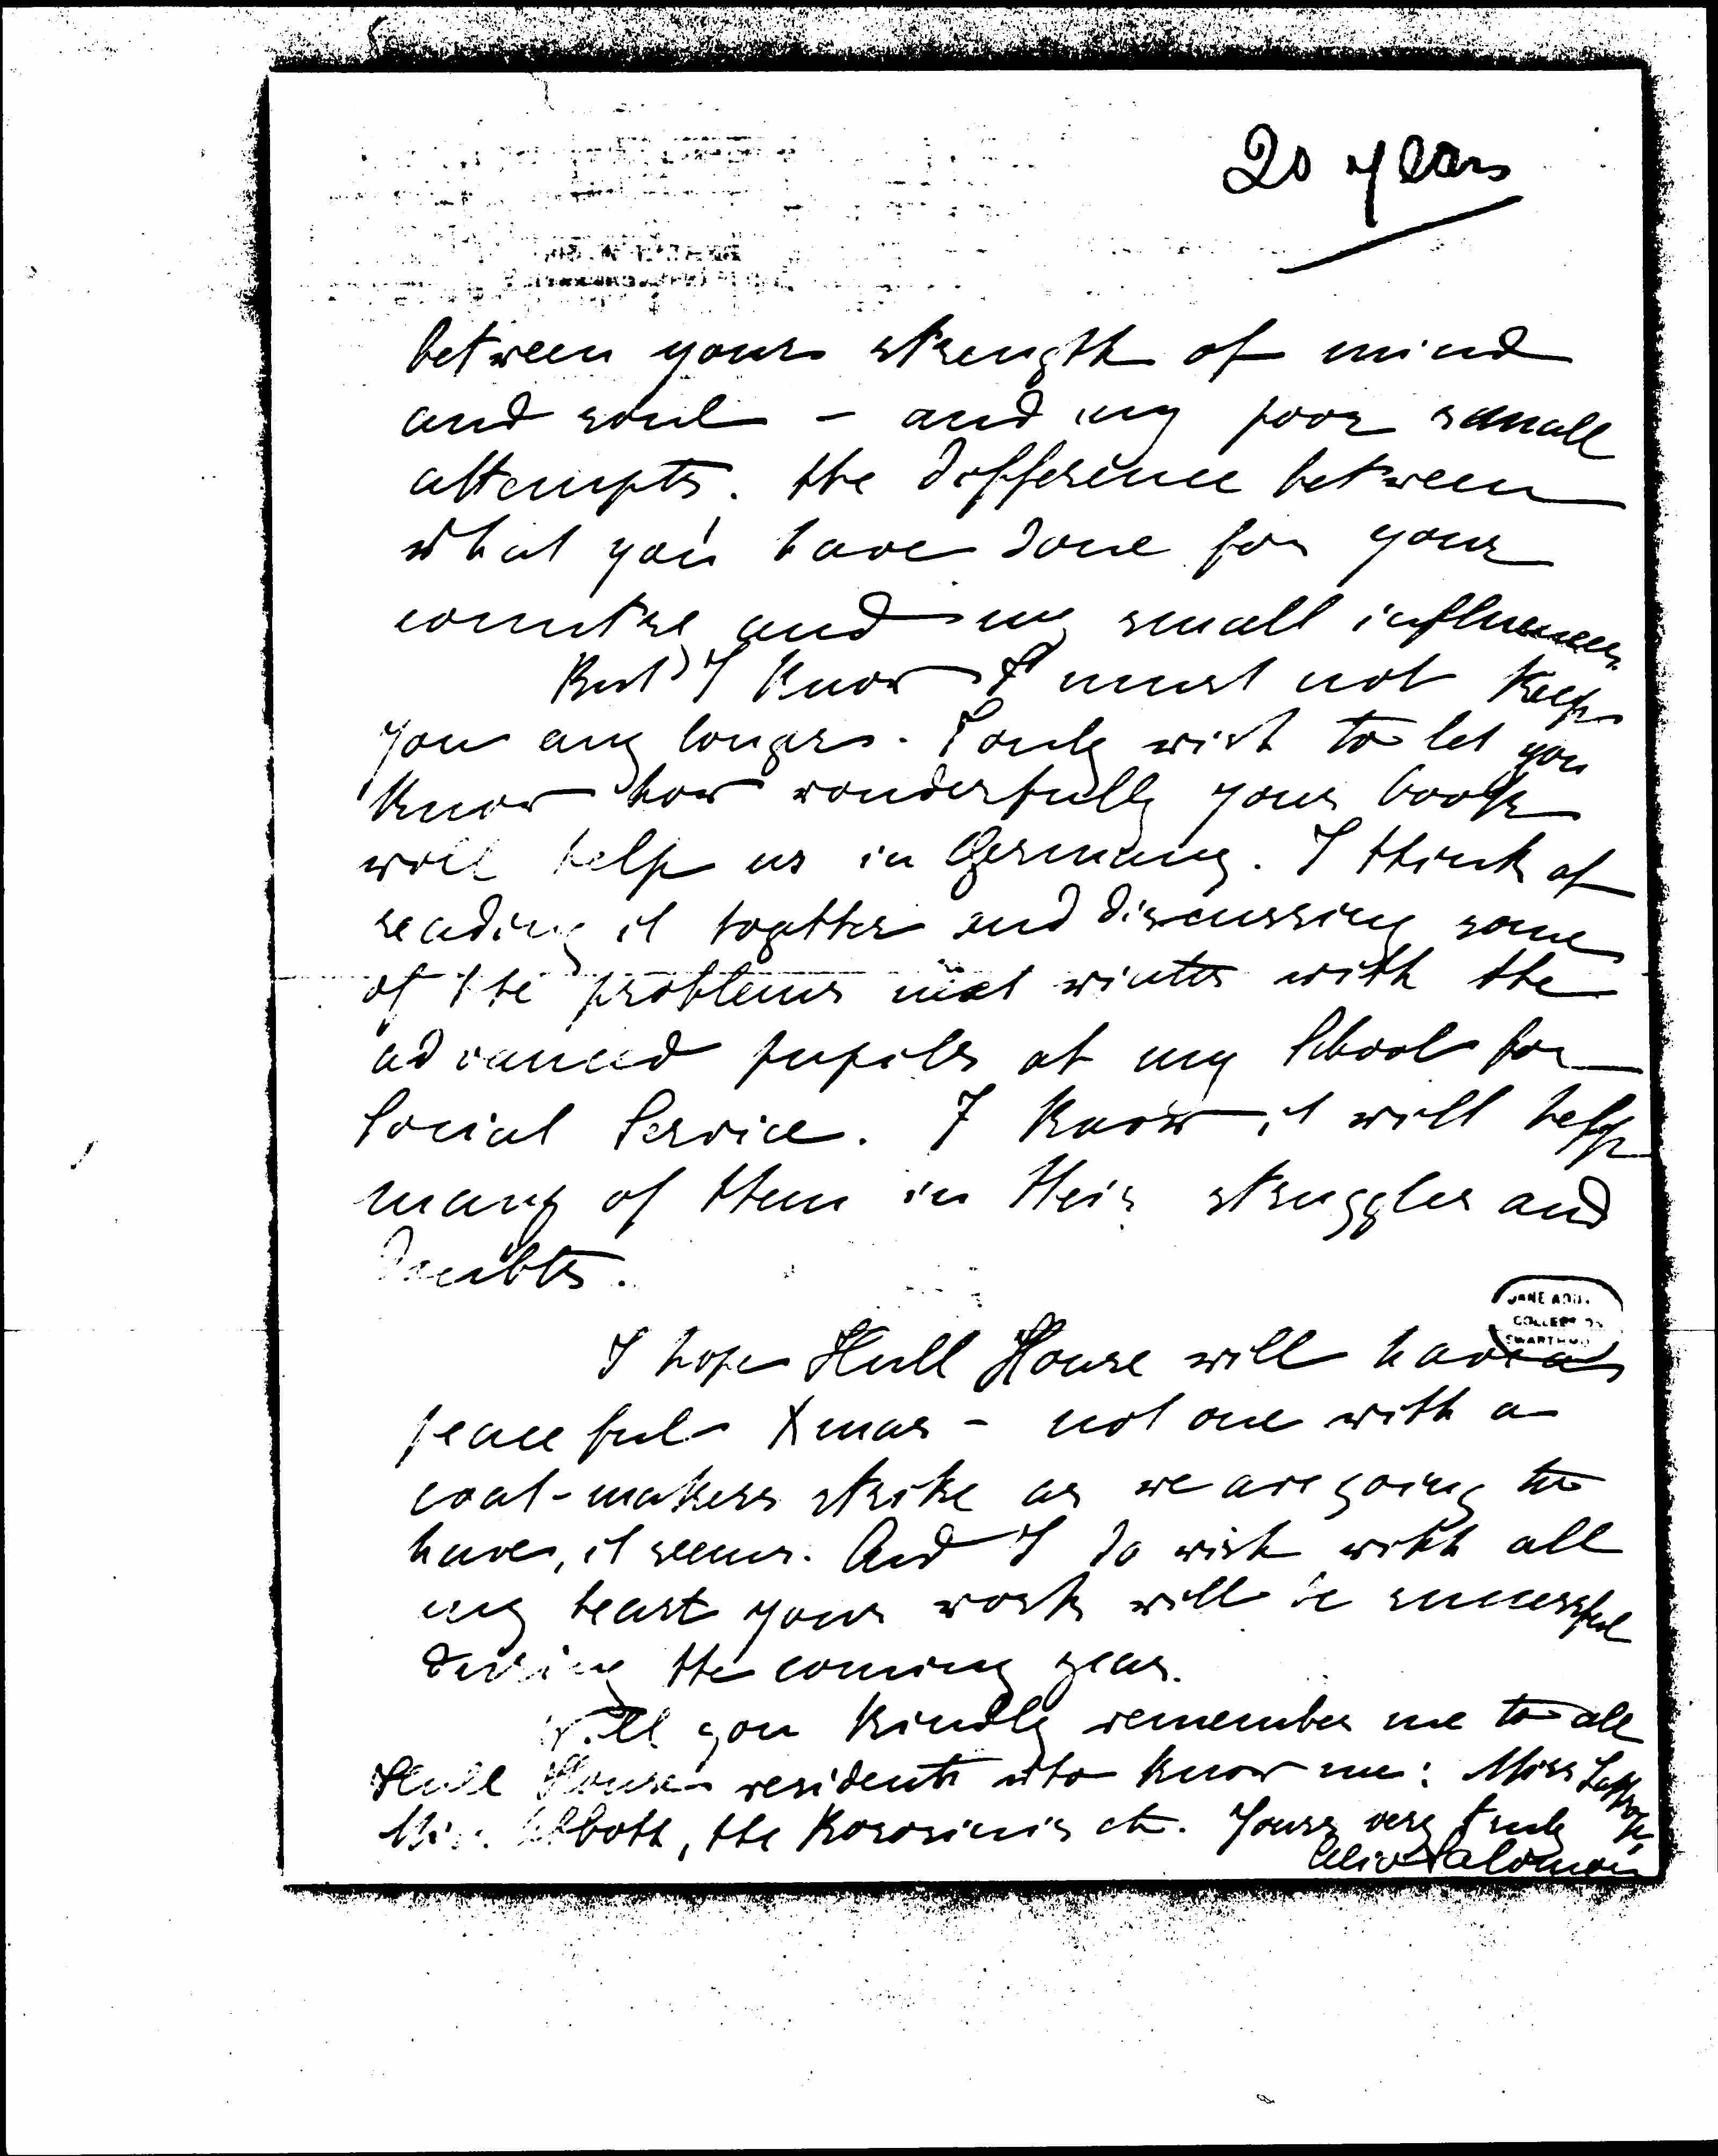 20 years
between your strength of mind
and soul - and my poor small
attempts. the difference between
what you have done for your
country and my small influences.
But I know I must not keep
you any longer. I only wish to let you
know how wonderfully your book
will help us in Germany. I think of
reading it together and discussing some
of the problems next winter with the
advanced pupils at my School for
Social Service. I know it will help
many of them in their struggles and
doubts.
JANE ADD
COLLECTION
SWARTHMO
I hope Hull House will have a
peaceful Xmas - not one with a
coat-makers strike as we are going to
have, it seems. And I do wish with all
my heart your work will be successful
during the coming year.
Will you kindly remember me to all
Hull House residents who know me: Miss Lathrop,
Miss Abbott, the etc. Yours very truly
Alice Salomon